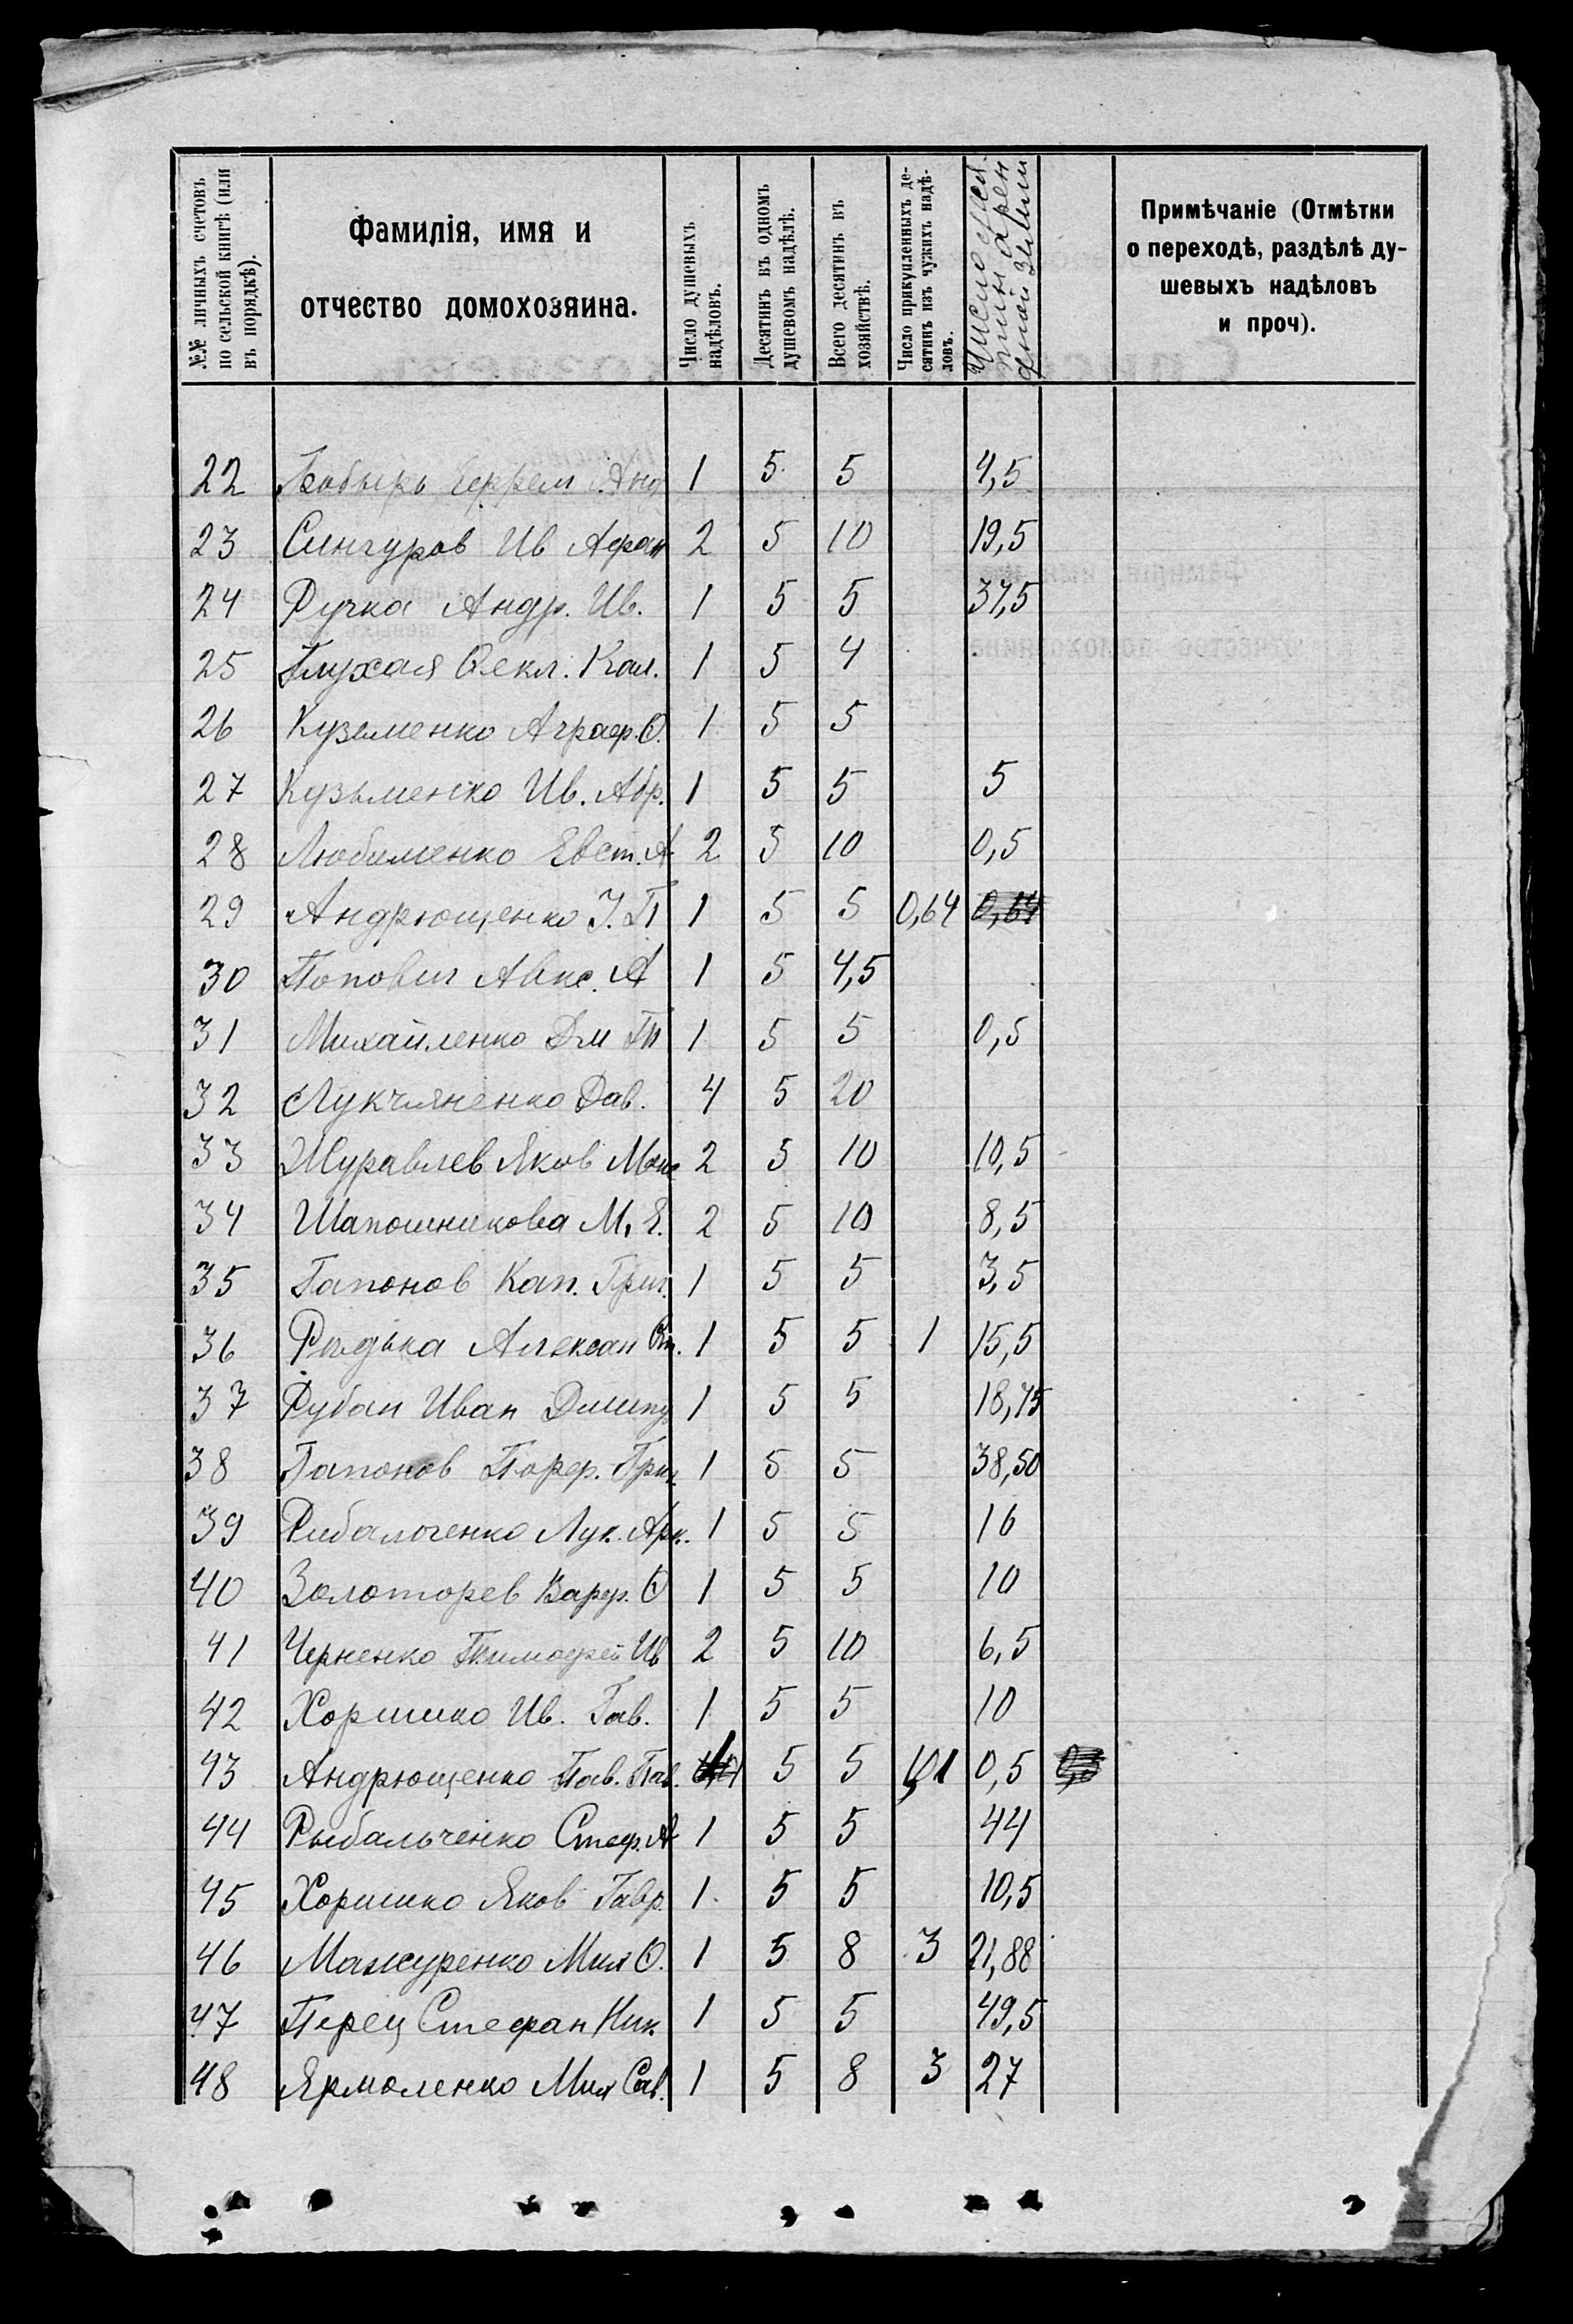 №№ личныхъ счетовъ по сельской книгѣ (или въ порядкѣ).
Фамилія, имя и отчество домохозяина.
Число душевыхъ надѣловъ.
Десятинъ въ одномъ душевомъ надѣлѣ.
Всего десятинъ въ хозяйствѣ.
Число прикупленныхъ десятинъ изъ чужихъ надѣловъ.
Число деся- тин арен дной земли
Примѣчаніе (Отмѣтки о переходѣ, раздѣлѣ душевыхъ надѣловъ и проч).
22 Бабырь Ефрем Анд 1 5 5 4,5
23 Сингуров Ив Афан 2 5 10 19,5
24 Ручка Андр. Ив. 1 5 5 37,5
25 Глухая Фекл. Кал. 1 5 4
26 Кузьменко Аграф. Ѳ. 1 5 5
27 Кузьменко Ив. Абр. 1 5 5 5
28 Любименко Евст. А 2 5 10 0,5
29 Андрющенко І. П 1 5 5 0,64 0,64
30 Попович Авкс. А 1 5 4,5
31 Михайленко Дм 1 5 5 0,5
32 Лукчяненко Дав. 4 5 20
33 Журавлев Яков Макс 2 5 10 10,5
34 Шапошникова М. Е. 2 5 10 8,5
35 Гапонов Кап. Григ. 1 5 5 3,5
36 Редька Алексан Ст. 1 5 5 1 15,5
37 Рубан Иван 1 5 5 18,75
38 Гапонов Порф. Григ. 1 5 5 38,50
39 Рибальченко Лук. Арк. 1 5 5 16
40 Золоторев Варф. Ѳ 1 5 5 10
41 Черненко Тимофей Ив 2 5 10 6,5
42 Хоришко Ив. Гав. 1 5 5 10
43 Андрющенко Пав. Пав. 1 5 5 0,5
44 Рыбальченко Стеф. А 1 5 5 44
45 Хоришко Яков Гавр. 1 5 5 10,5
46 Мажуренко Мих Ѳ. 1 5 8 3 21,88
47 Перец Стефан Ник. 1 5 5 49,5
48 Ярмоленко Мих Сав. 1 5 8 3 27